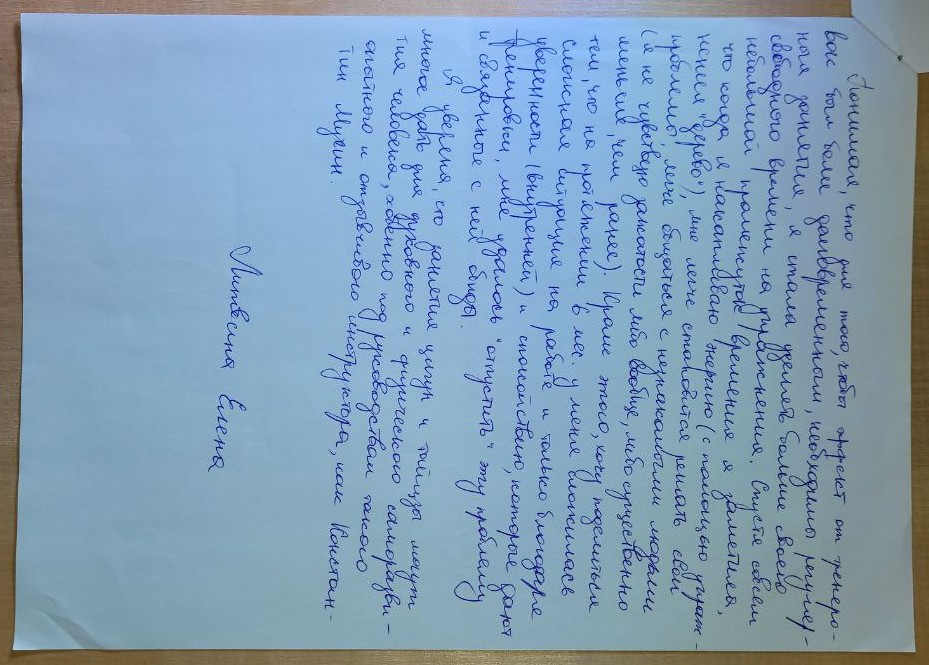 Понимая, что для того, чтобы эффект от трениро-
вок был более долговременным, необходимы регуляр-
ные занятия, я стала уделять больше своего
свободного времени на упражнения. Спустя совсем
небольшой промежуток времения я заметила,
что когда я накапливаю энергию (с помощью упраж-
нения "дерево"), мне легче становится решать свои
проблемы, легче общаться с незнакомыми людьми
(я не чувствую зажатости либо вообще, либо существенно
меньше, чем ранее). Кроме этого, хочу поделиться
тем, что на протяжении 6 мес. у меня сложилась
сложная ситуация на работе и только благодаря
уверенности (внутренней) и спокойствию, которые дают
тренировки, мне удалось "отпустить" эту проблему
и связанные с ней обиды.
Я уверена, что занятия цигун и тайцзы могут
многое дать для духовного и физического саморазви-
тия человека, особенно под руководством такого
опытного и отзывчивого инструктора, как Констан-
тин Мукин.
Литвина Елена